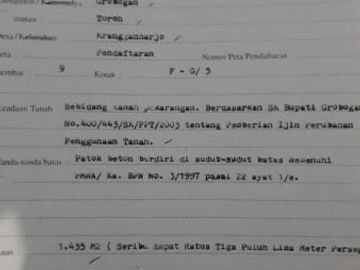 Grobogan
matan : Toroh
Desa / Kelurahan Krangganharjo
Peta Pendaftaran Nomor Peta Pendaftaran
Lembar 9 Kotak : F - G/ 5
Keadaan Tanah : Sebidang tanah pekarangan. Berdasarkan SK Bupati Grobogan
No.400/443/SK/PPT/2003 tentang Pemberian Ijin Perubahan
Penggunaan Tanah.
Tanda-tanda batas : Patok beton berdiri di sudut-sudut batas memenuhi
PMNA/ Ka. BPN No. 3/1997 pasal 22 ayat 1/e.
Luas : 1.435 M2 ( Seribu Empat Ratus Tiga Puluh Lima Meter Perseg